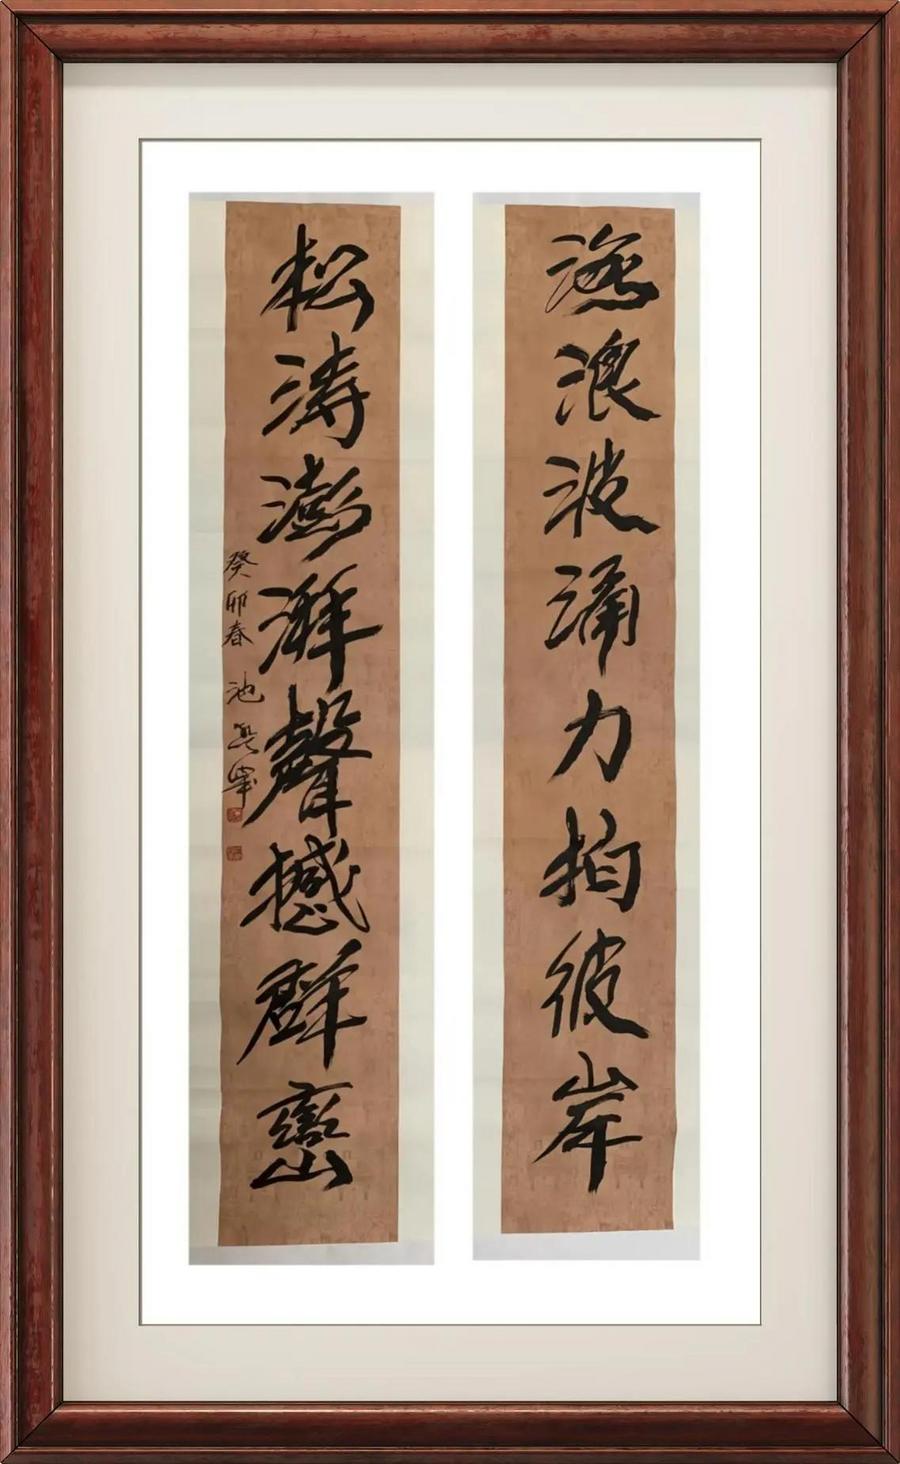 海浪波涌力拍彼岸
松涛澎湃聲撼群巒
癸卯春 池